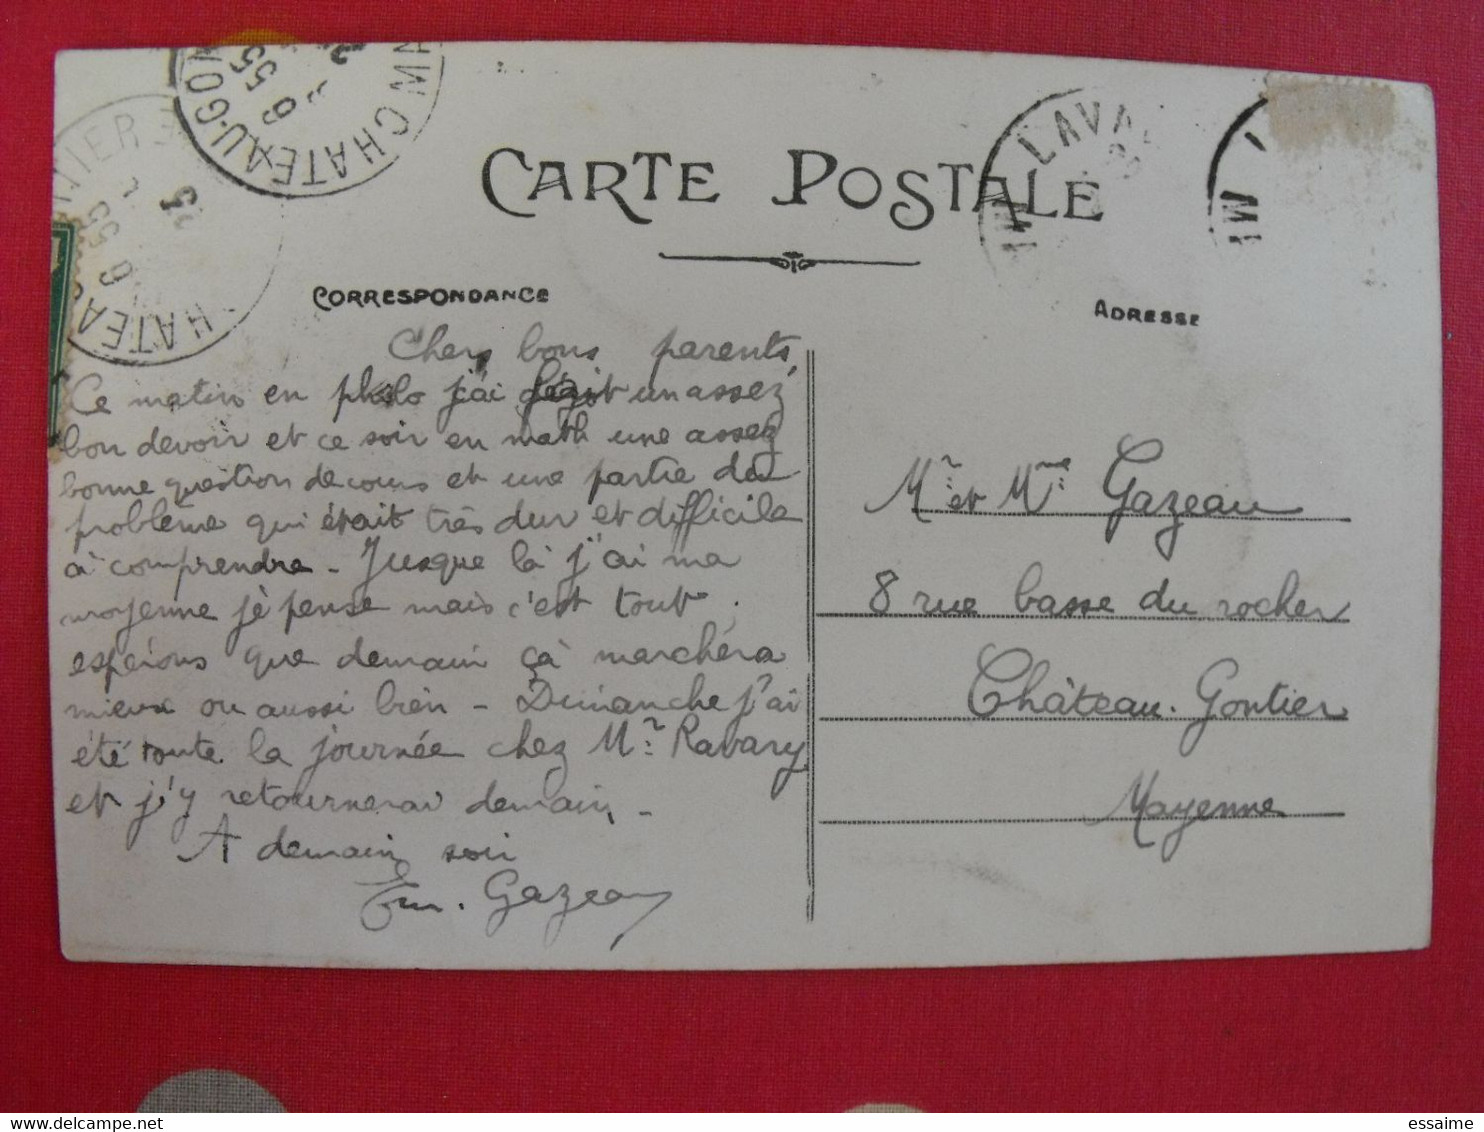 CHATEAU-GON
9 55
LAVAL
CARTE POSTALE
CORRESPONDANCE
ADRESSE
Chers bons parents
Ce matin en philo j'ai fait un assez
bon devoir et ce soir en math une assez
bonne question de cours et une partie du
problème qui était très dur et difficile
à comprendre - Jusque là j'ai ma
moyenne je pense mais c'est tout.
espérons que demain çà marchera
mieux ou aussi bien - Dimanche j'ai
été toute la journée chez Mr Ravary
et j'y retournerai demain -
A demain soir
Gazeau
Mr et Mme Gazeau
8 rue basse du rocher
Château-Gontier
Mayenne
essaime